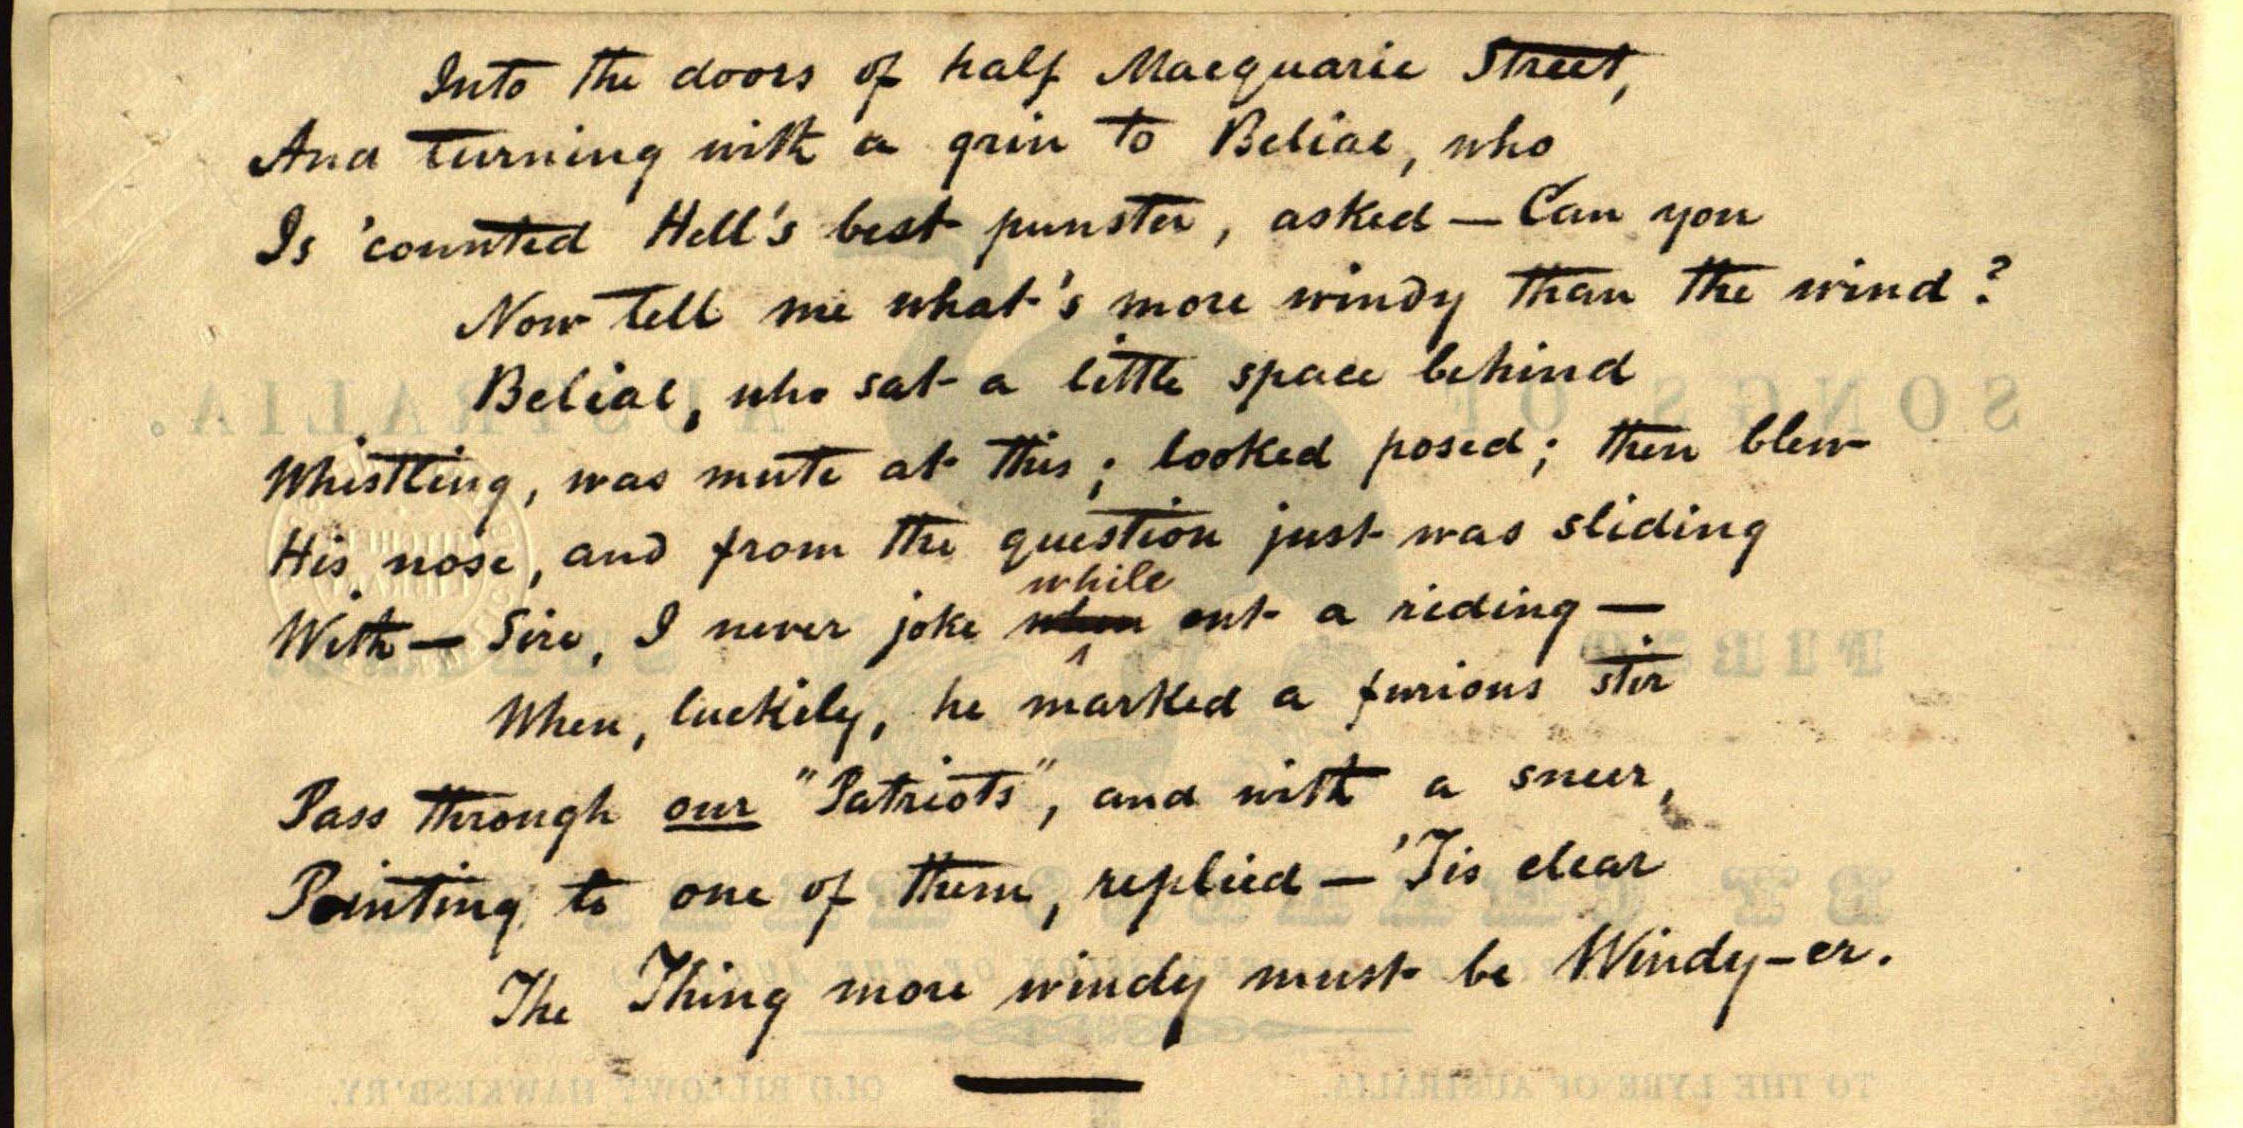 Into the doors of half Macquarie Street,
And turning with a grin to Belial, who
Is 'counted Hell's best punster, asked — Can you
Now tell me what's more windy than the wind?
Belial, who sat a little space behind
Whistling, was mute at this; looked posed; then blew
His nose, and from the question just was sliding
while
With — Sire, I never joke when out a riding —
When, luckily, he marked a furious stir
Pass through our "Patriots", and with a sneer,
Pointing to one of them, replied — 'Tis clear
The Thing more windy must be Windy-er.
SONGS OF AUSTRALIA.
FIRST SERIES
BY CHARLES
OF THE
TO THE LYRE OF AUSTRALIA.
OLD BILLOWY HAWKESB'RY.